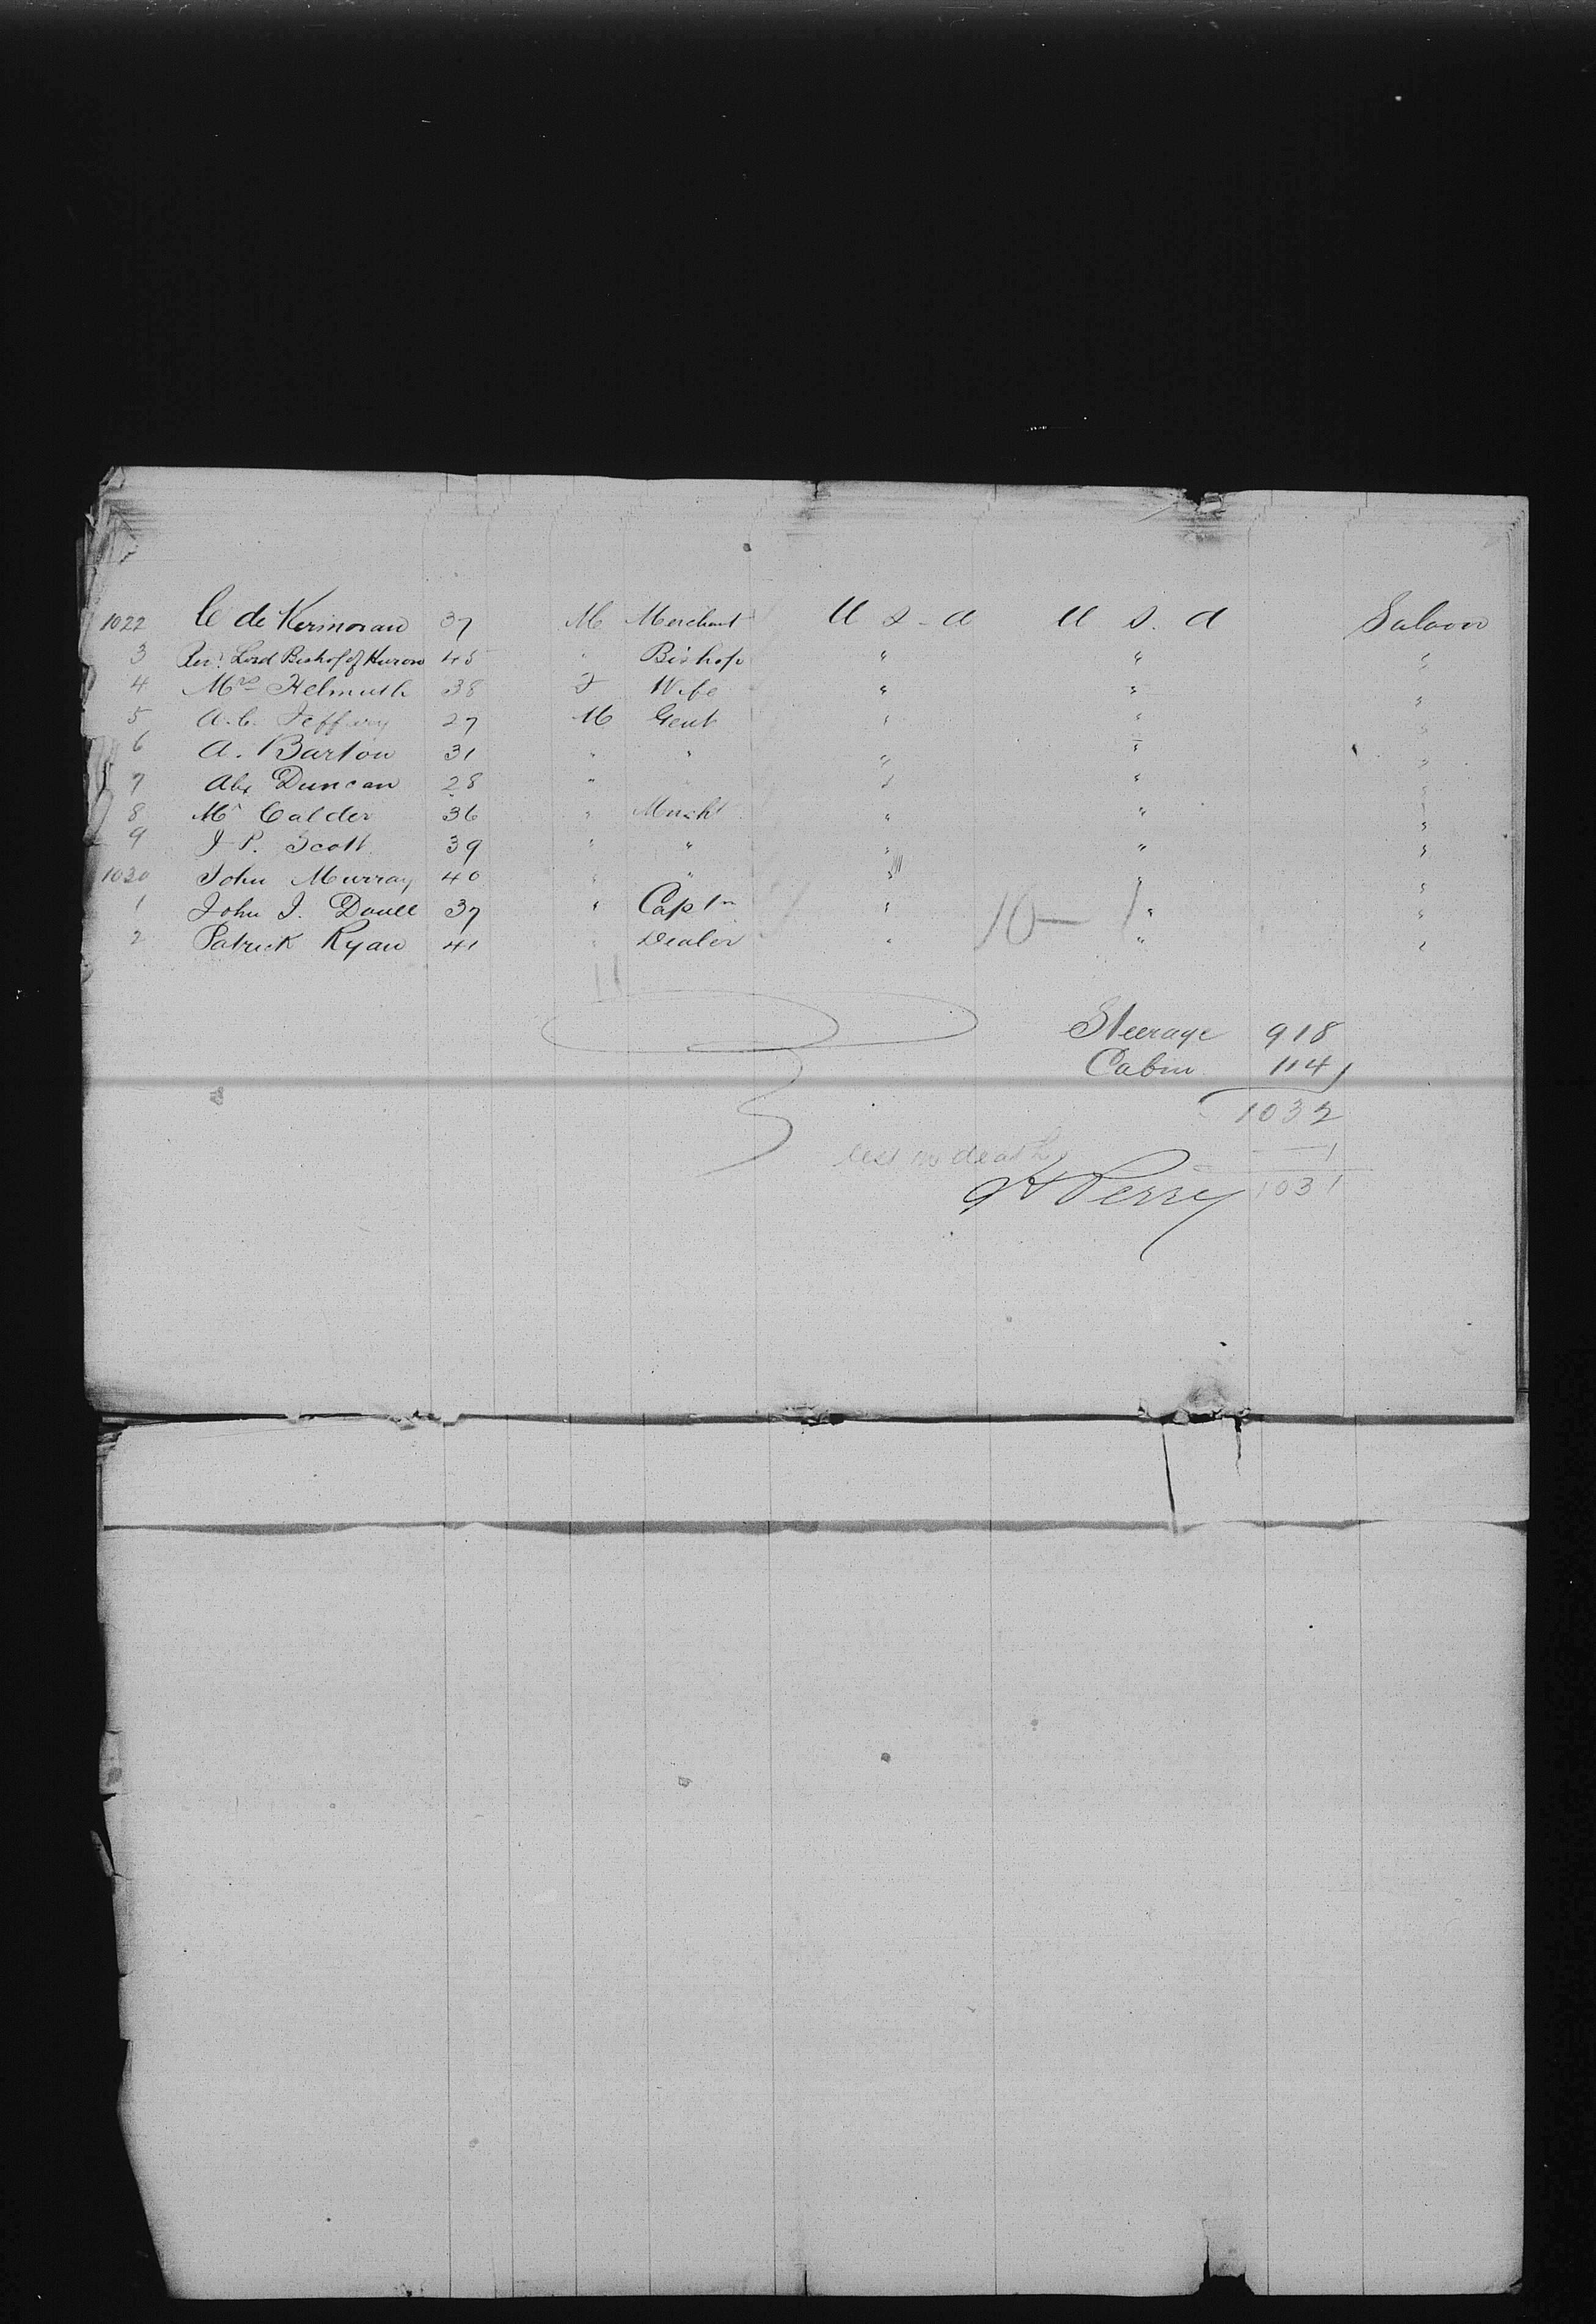 1022 C de Kermoran 37 M Merchant U S. A U S. A Saloon
3 Revd. Lord Bishop of Huron 45 " Bishop " " "
4 Mrs Helmuth 38 F Wife " " "
5 A. C. Jeffery 27 M Gent " " "
6 A. Barton 31 " " " " "
7 Alex Duncan 28 " " " "
8 Mr Calder 36 " Mercht " " "
9 J. P. Scott 39 " " " " "
1030 John Murray 40 " " " " "
1 John J. 37 " Captn " 10 — 1 " "
2 Patrick Ryan 41 " Dealer " " "
11
Steerage 918
Cabin 114
1032
less death — 1
H Perry 1031